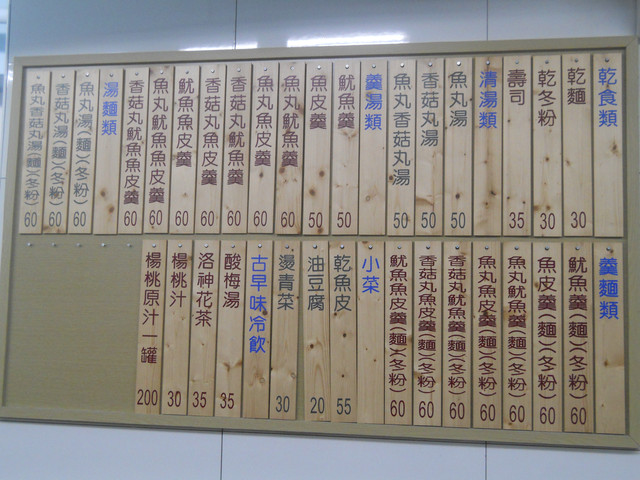 乾食類
乾麵 30
乾冬粉 30
壽司 35
清湯類
魚丸湯 50
香菇丸湯 50
魚丸香菇丸湯 50
羹湯類
魷魚羹 50
魚皮羹 50
魚丸魷魚羹 60
魚丸魚皮羹 60
香菇丸魷魚羹 60
香菇丸魚皮羹 60
魷魚魚皮羹 60
魚丸魷魚魚皮羹 60
香菇丸魷魚魚皮羹 60
湯麵類
魚丸湯(麵)(冬粉) 60
香菇丸湯(麵)(冬粉) 60
魚丸香菇丸湯(麵)(冬粉) 60
羹麵類
魷魚羹(麵)(冬粉) 60
魚皮羹(麵)(冬粉) 60
魚丸魷魚羹(麵)(冬粉) 60
魚丸魚皮羹(麵)(冬粉) 60
香菇丸魷魚羹(麵)(冬粉) 60
香菇丸魚皮羹(麵)(冬粉) 60
魷魚魚皮羹(麵)(冬粉) 60
小菜
乾魚皮 55
油豆腐 20
燙青菜 30
古早味冷飲
酸梅湯 35
洛神花茶 35
楊桃汁 30
楊桃原汁一罐 200